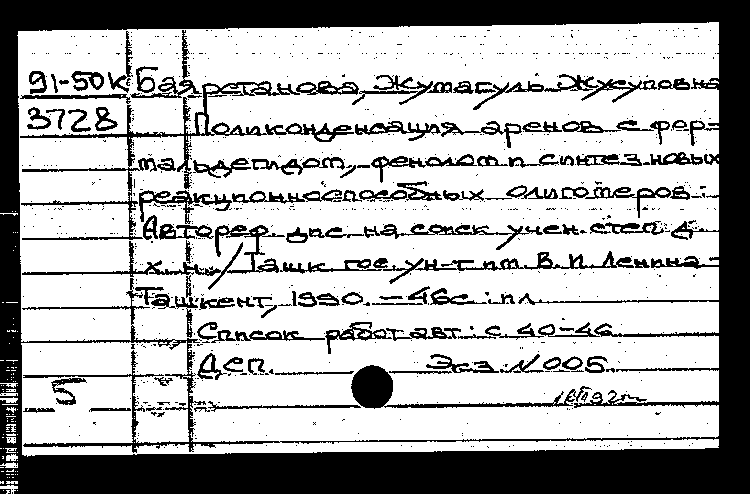 91-50К Баярстанова, Жумагуль Жусуповна
3728 Поликонденсация аренов с фор-
мальдегидом, фенолом и синтез новых
реакционноспособных олигомеров:
Автореф. дис. на соиск учен. степ д.
х. н./ Ташк гос. ун-т им. В. И. Ленина -
Ташкент, 1990. - 46с : ил.
Список работ авт : с 40-46
ДСП. Экз. № 005
5